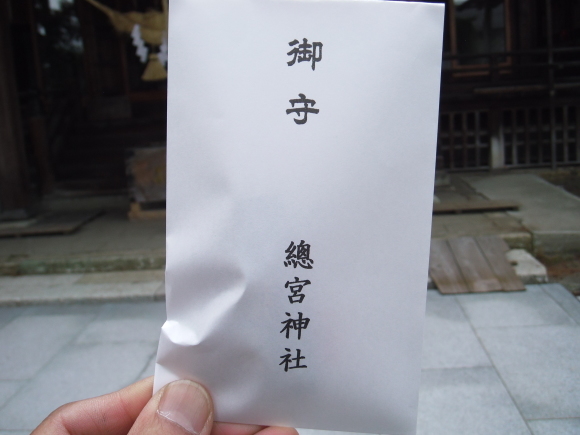 御守
總宮神社